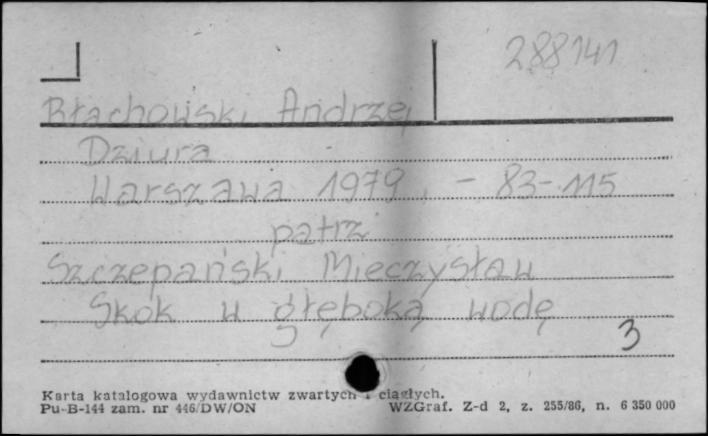 288141
Błachowski, Andrzej
Dziura
Warszawa 1979, - 83-115
patrz
Szczepański, Mieczysław
Skok w głęboką wodę
3
Karta katalogowa wydawnictw zwartych i ciągłych.
Pu-B-144 zam. nr 446/DW/ON WZGraf. Z-d 2, z. 255/86, n. 6 350 000